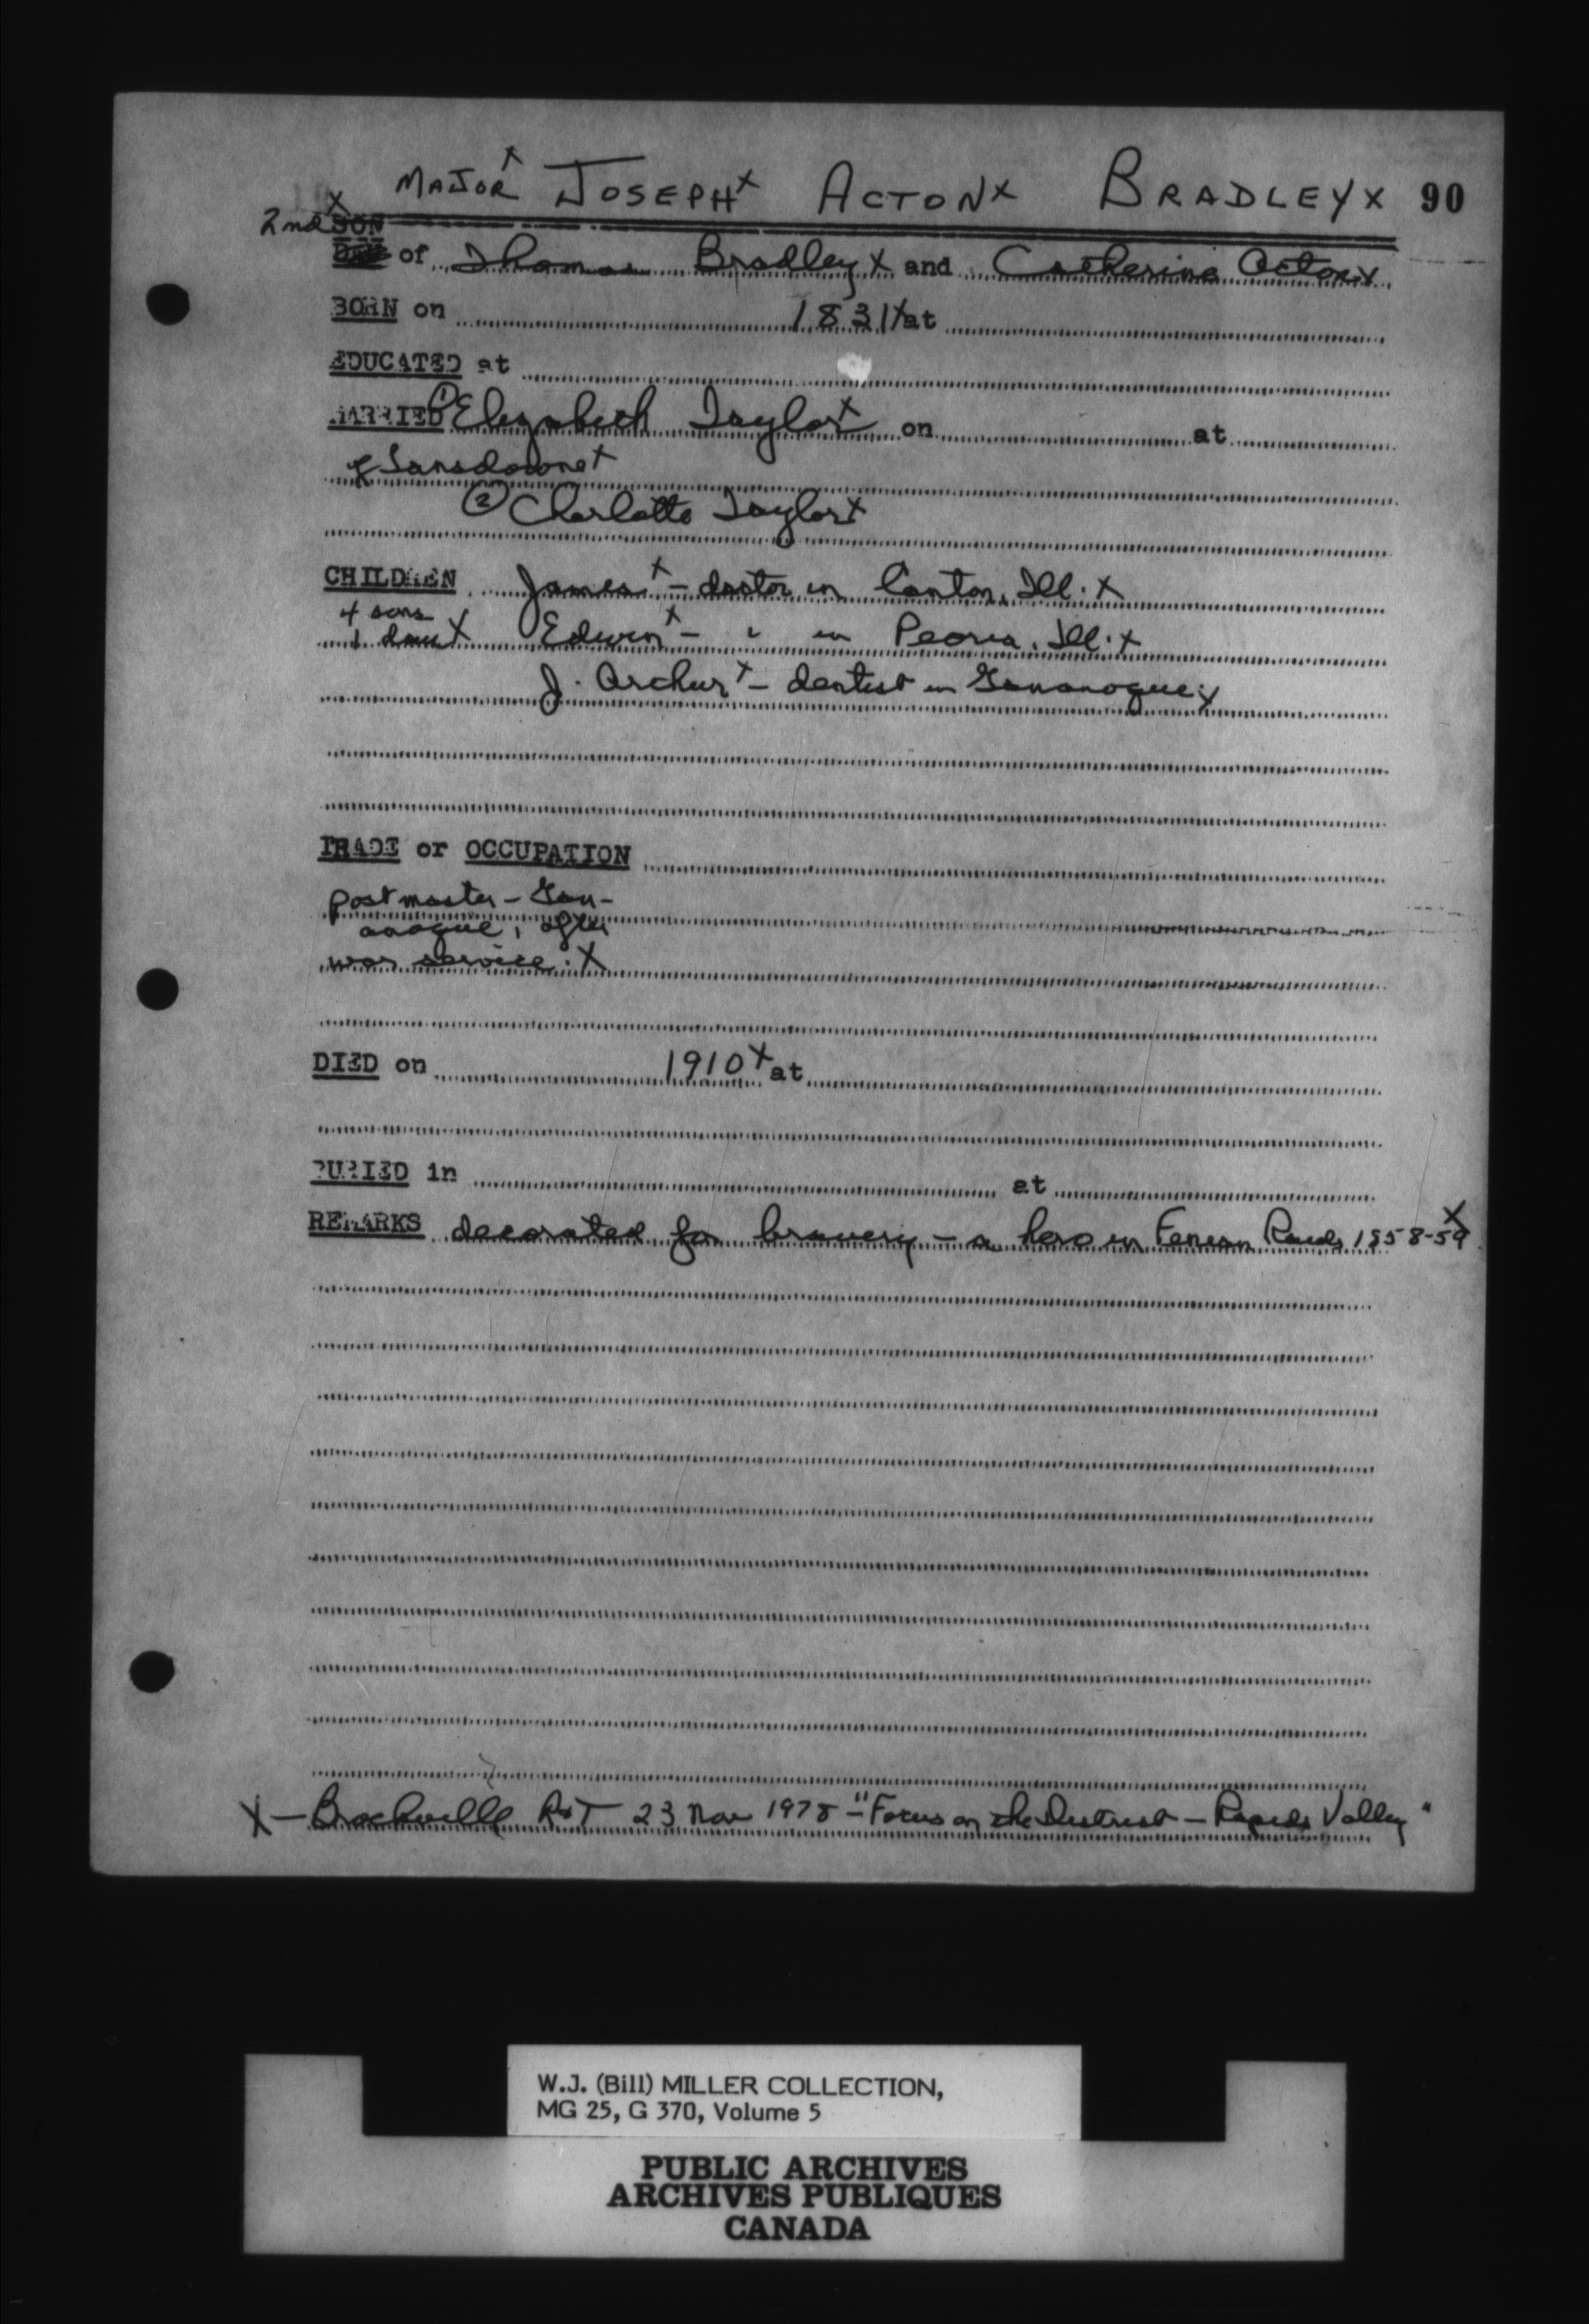 MAJOR X JOSEPH X ACTON X BRADLEY X 90
2nd X SON
of Thomas Bradley X and Catherine Acton X
BORN on 1831 X at
EDUCATED at
MARRIED ① Elizabeth Taylor X on at
of Lansdowne X
② Charlotte Taylor X
CHILDREN James X - doctor in Canton, Ill. X
4 sons
1 dau X Edwin X - " in Peoria, Ill. X
J. Archur X - dentist in Gananoque X
TRADE or OCCUPATION
postmaster - Gan-
anoque, after
war service. X
DIED on 1910 X at
BURIED in at
REMARKS decorated for bravery - a hero in Fenian Raids 1858-59 X
X - Brockville R&T 23 Nov 1978 - "Focus on the District - Rapids Valley"
W.J. (Bill) MILLER COLLECTION,
MG 25, G 370, Volume 5
PUBLIC ARCHIVES
ARCHIVES PUBLIQUES
CANADA